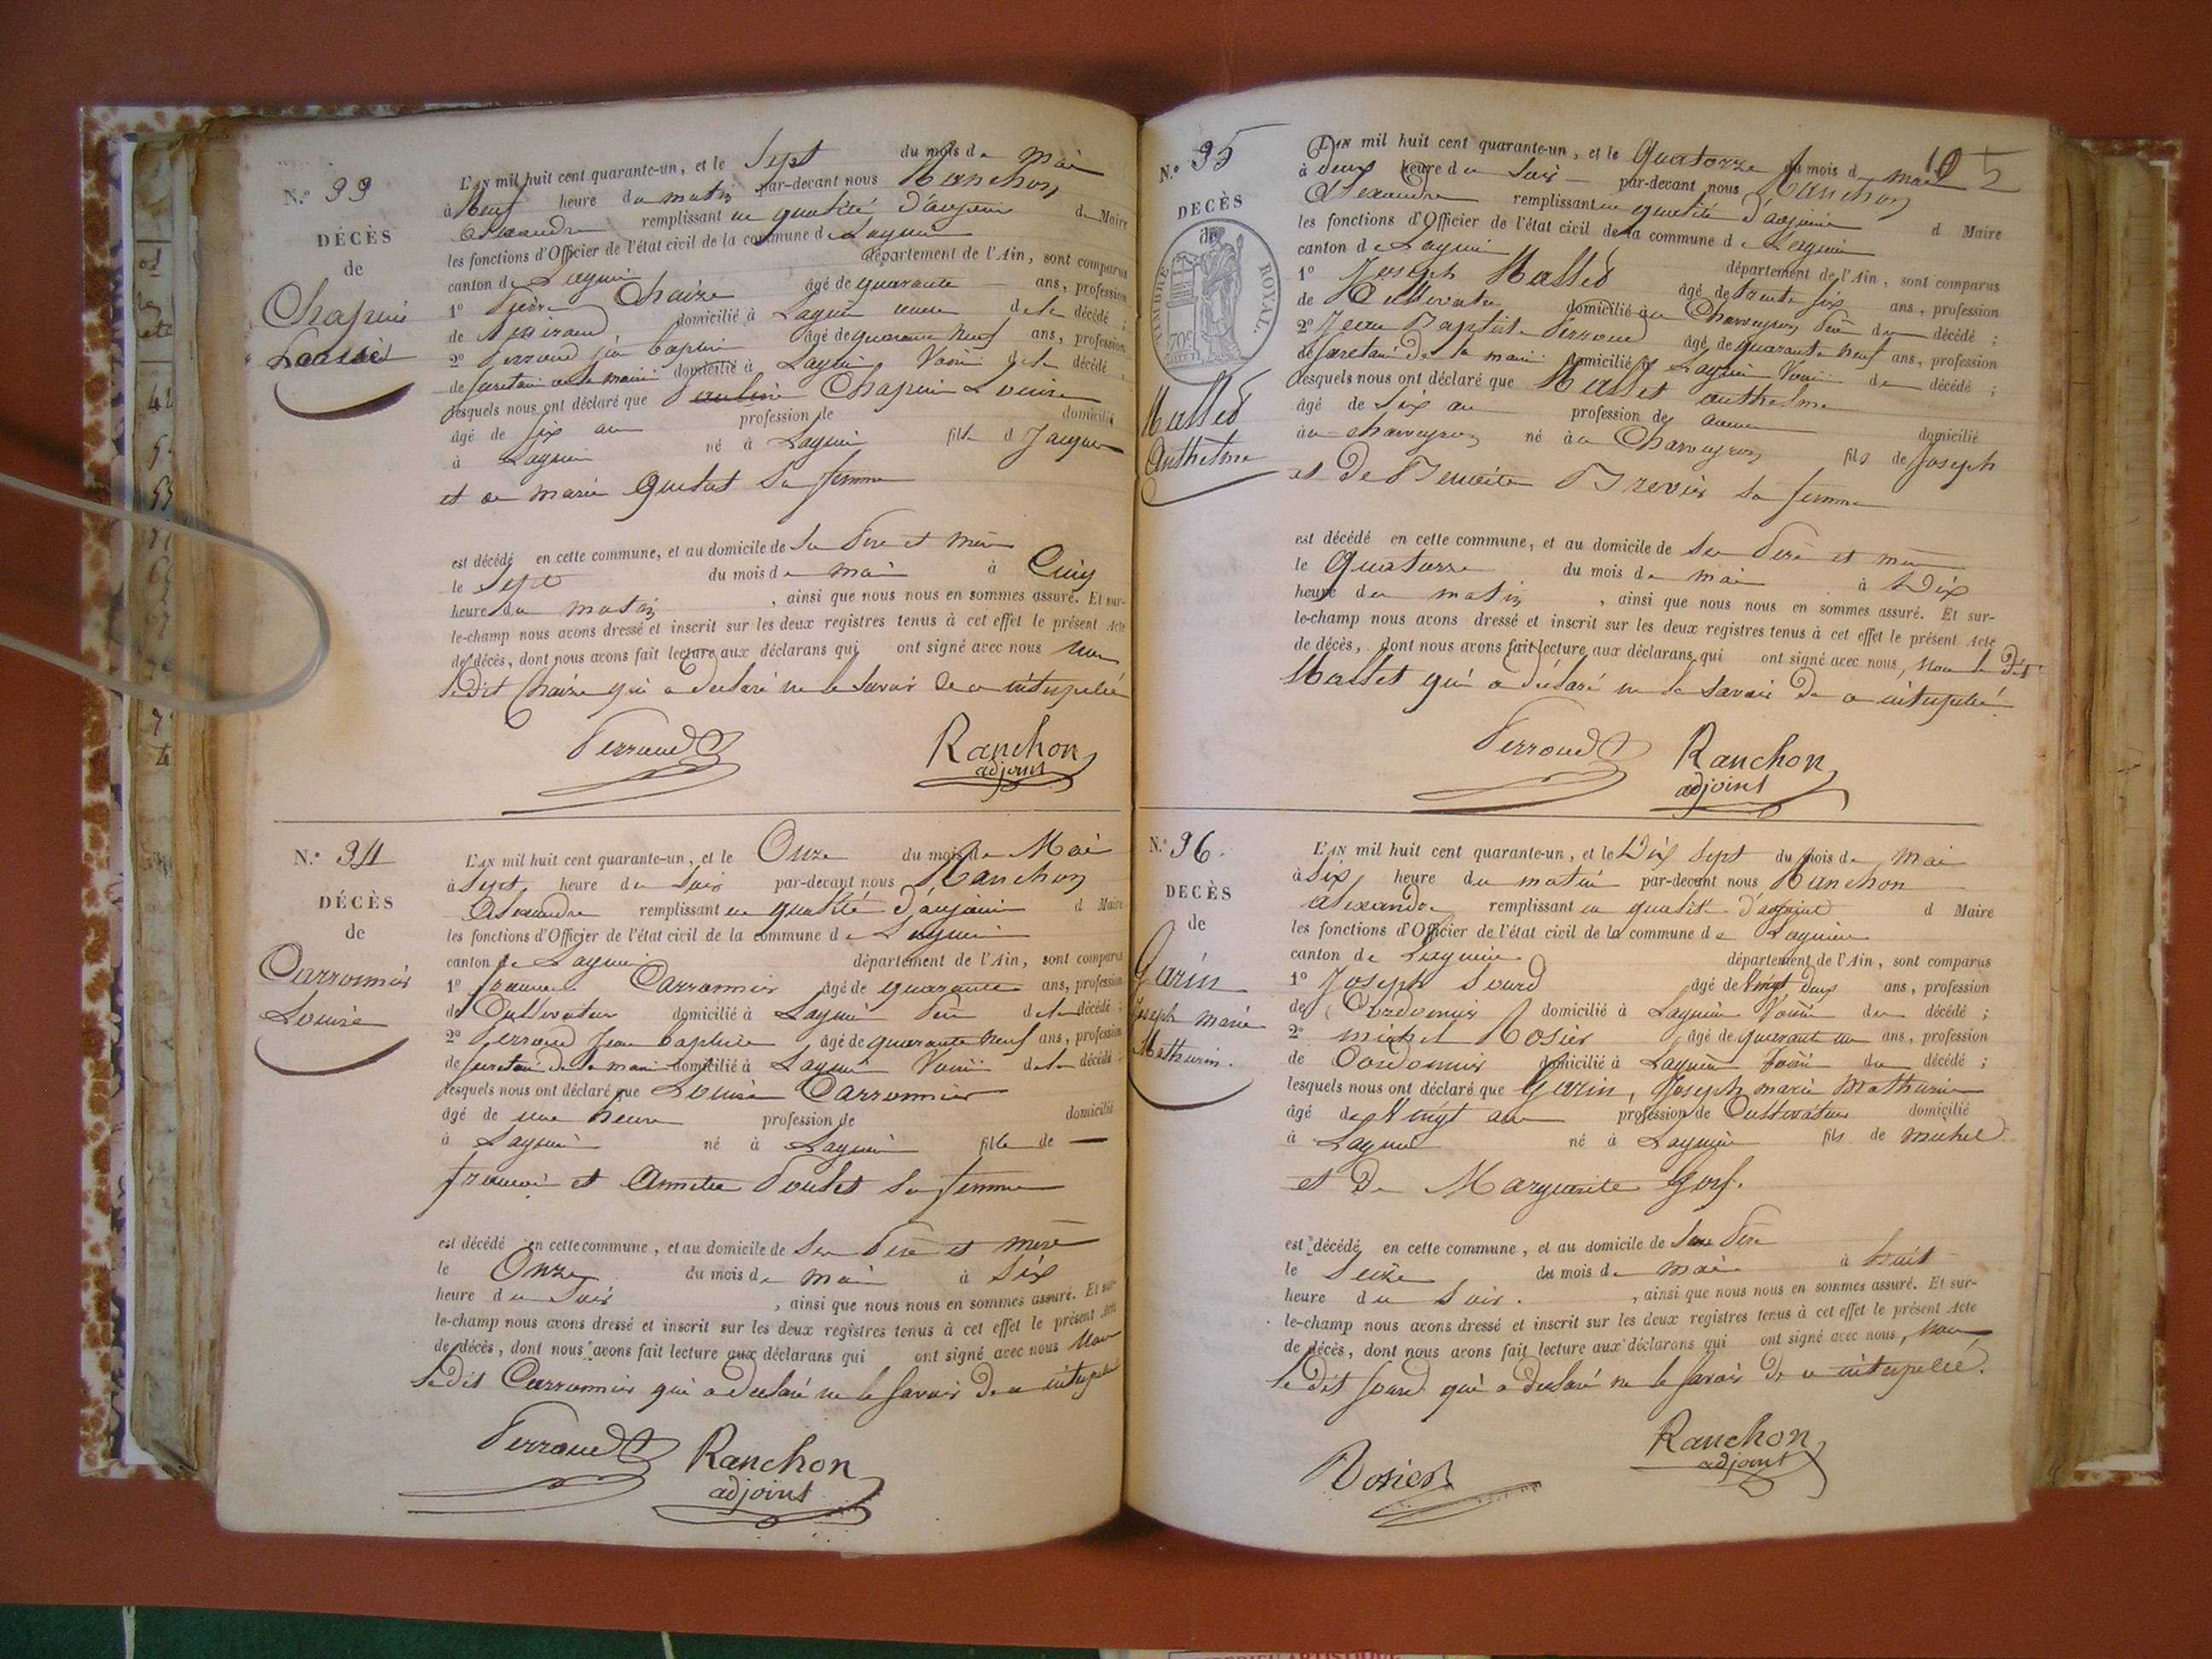 N.º 33
DÉCÈS
de
Chapuis
Louise
L'AN mil huit cent quarante-un, et le Sept du mois de Mai
à Neuf heure du matin par-devant nous Ranchon
Alexandre remplissant en qualité d'adjoint d Maire
les fonctions d'Officier de l'état civil de la commune de Lagnieu
canton de Lagnieu département de l'Ain, sont comparus
1º Pierre Chaize âgé de quarante ans, profession
de domicilié à Lagnieu de la décédé ;
2º Perroud jean baptiste âgé de quarante neuf ans, profession
de secretaire de la mairie domicilié à Lagnieu Voisin de la décédé ;
lesquels nous ont déclaré que Chapuis Louise
âgé de six ans profession de domicilié
à Lagnieu né à Lagnieu fille d Jacques
et de marie Guetat sa femme
est décédé en cette commune, et au domicile de ses Père et mère
le Sept du mois de mai à Cinq
heure du matin, ainsi que nous nous en sommes assuré. Et sur-
le-champ nous avons dressé et inscrit sur les deux registres tenus à cet effet le présent Acte
de décès, dont nous avons fait lecture aux déclarans qui ont signé avec nous non
le Dit Chaize qui a declaré ne le savoir de ce interpellé
Perroud Ranchon
adjoint
N.º 34
DÉCÈS
de
Carronnier
Louise
L'AN mil huit cent quarante-un, et le Onze du mois de Mai
à Sept heure du Soir par-devant nous Ranchon
Alexandre remplissant en qualité d'adjoint d Maire
les fonctions d'Officier de l'état civil de la commune de Lagnieu
canton de Lagnieu département de l'Ain, sont comparus
1º francois Carronnier âgé de quarante ans, profession
de Cultivateur domicilié à Lagnieu Père de la décédé ;
2º Perroud Jean baptiste âgé de quarante neuf ans, profession
de secretaire de la mairie domicilié à Lagnieu Voisin de la décédé ;
lesquels nous ont déclaré que Louise Carronnier
âgé de une heure profession de domicilié
à Lagnieu né à Lagnieu fille de —
francois et Annette Poulet sa femme
est décédé en cette commune, et au domicile de ses Père et mère
le Onze du mois de mai à Six
heure du Soir, ainsi que nous nous en sommes assuré. Et sur-
le-champ nous avons dressé et inscrit sur les deux registres tenus à cet effet le présent Acte
de décès, dont nous avons fait lecture aux déclarans qui ont signé avec nous Non
le Dit Carronnier qui a declaré ne le savoir de ce interpellé
Perroud Ranchon
adjoint
105
N.º 35
DECÈS
de
TIMBRE ROYAL.
Mallet
Anthelme
L'AN mil huit cent quarante-un, et le Quatorze du mois d mai
à Deux heure du Soir par-devant nous Ranchon
Alexandre remplissant en qualité d'adjoint d Maire
les fonctions d'Officier de l'état civil de la commune de Lagnieu
canton de Lagnieu département de l'Ain, sont comparus
1º Joseph Mallet âgé de trente six ans, profession
de Cultivateur domicilié au Charveyron Père du décédé ;
2º Jean Baptiste Perroud âgé de quarante neuf ans, profession
de secretaire de la mairie domicilié à Lagnieu Voisin du décédé ;
lesquels nous ont déclaré que Mallet anthelme
âgé de six ans profession de aucune domicilié
au charveyron né au Charveyron fils de Joseph
et De Benoite Brevier sa femme
est décédé en cette commune, et au domicile de ses Père et mère
le Quatorze du mois de mai à Dix
heure du matin, ainsi que nous nous en sommes assuré. Et sur-
le-champ nous avons dressé et inscrit sur les deux registres tenus à cet effet le présent Acte
de décès, dont nous avons fait lecture aux déclarans qui ont signé avec nous, Non le Dit
Mallet qui a declaré ne le savoir De ce interpellé
Perroud Ranchon
adjoint
N.º 36.
DECÈS
de
Garin
Joseph marie
Mathurin.
L'AN mil huit cent quarante-un, et le Dix Sept du mois de mai
à Six heure du matin par-devant nous Ranchon
alexandre remplissant en qualité d'adjoint d Maire
les fonctions d'Officier de l'état civil de la commune de Lagnieu
canton de Lagnieu département de l'Ain, sont comparus
1º Joseph Sourd âgé de Vingt Deux ans, profession
de Cordonnier domicilié à Lagnieu Voisin du décédé ;
2º michel Rosier âgé de quarante un ans, profession
de Cordonnier domicilié à Lagnieu Voisin du décédé ;
lesquels nous ont déclaré que Garin, Joseph marie Mathurin
âgé de Vingt ans profession de Cultivateur domicilié
à Lagnieu né à Lagnieu fils de michel
et De Marguerite
est décédé en cette commune, et au domicile de Son Père
le Seize du mois de mai à huit
heure du Soir., ainsi que nous nous en sommes assuré. Et sur-
le-champ nous avons dressé et inscrit sur les deux registres tenus à cet effet le présent Acte
de décès, dont nous avons fait lecture aux déclarans qui ont signé avec nous, Non
le dit Sourd qui a declaré ne le savoir De ce interpellé.
Rosier Ranchon
adjoint